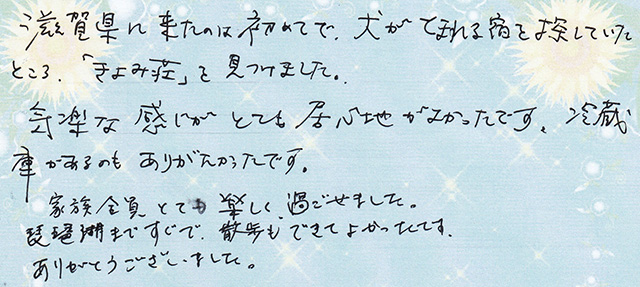 滋賀県に来たのは初めてで、犬がとまれる宿を探していた
ところ、「きよみ荘」を見つけました。
気楽な感じがとても居心地がよかったです。冷蔵
庫があるのもありがたかったです。
家族全員とても楽しく過ごせました。
琵琶湖まですぐで、散歩もできてよかったです。
ありがとうございました。